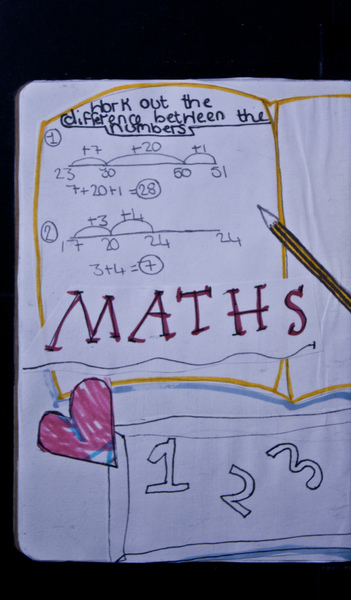 Work out the
difference between the
numbers
1
+7 +20 +1
23 30 50 51
7+20+1=28
2
+3 +4
17 20 24 24
3+4=7
MATHS
1 2 3